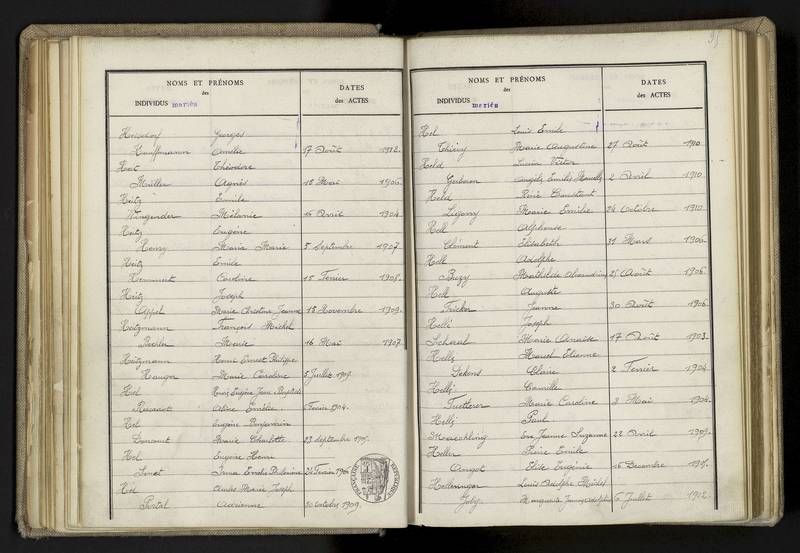 NOMS ET PRÉNOMS
des
INDIVIDUS mariés
DATES
des ACTES
Georges
Kauffmann Amélie 17 Août 1912.
Heit Théodore
Müller Agnès 18 Mai 1906.
Heitz Emile
Wingender Mélanie 16 Avril 1904.
Heitz Eugène
Henry Marie Marie 5 Septembre 1907.
Heitz Emile
Caroline 18 Février 1908.
Heitz Joseph
Appel Marie Christine Jeanne 18 Novembre 1909.
Heitzmann François Michel
Marie 16 Mai 1907.
Heitzmann Henri Ernest Philippe
Haugon Marie Caroline 5 Juillet 1909.
Hel Eugène Jean Baptiste
Aline Emélie Février 1904.
Hel Eugène Benjamin
Marie Charlotte 23 septembre 1909.
Hel Eugène Henri
Irma Philomène Février
Hel André Marie Joseph
Portal Adrienne 30 octobre 1909.
98
NOMS ET PRÉNOMS
des
INDIVIDUS mariés
DATES
des ACTES
Hel Louis Emile
Thiéry Marie Augustine 27 Août 1910
Held Lucien Victor
Angèle Emilie 2 Avril 1910
Held René Constant
Marie Emilie 26 Octobre 1910
Hell Alphonse
Clément Elisabeth 31 Mars 1906.
Hell Adolphe
Buzy Mathilde 25 Août 1906.
Hell Auguste
Fricker Jeanne 30 Août 1906.
Hellé Joseph
Scharal Marie Anaïse 17 Août 1903.
Hellé Marcel Etienne
Dekens Claire 2 Février 1904.
Hellé Camille
Fuetterer Marie Caroline 3 Mai 1904.
Hellé Paul
Maechling Eve Jeanne Suzanne 28 Avril 1909.
Heller Pierre Emile
Angot Elise Eugénie 16 Décembre
Hellesinger Louis Adolphe Michel
Joly Marguerite Jeanne 6 Juillet 1912.